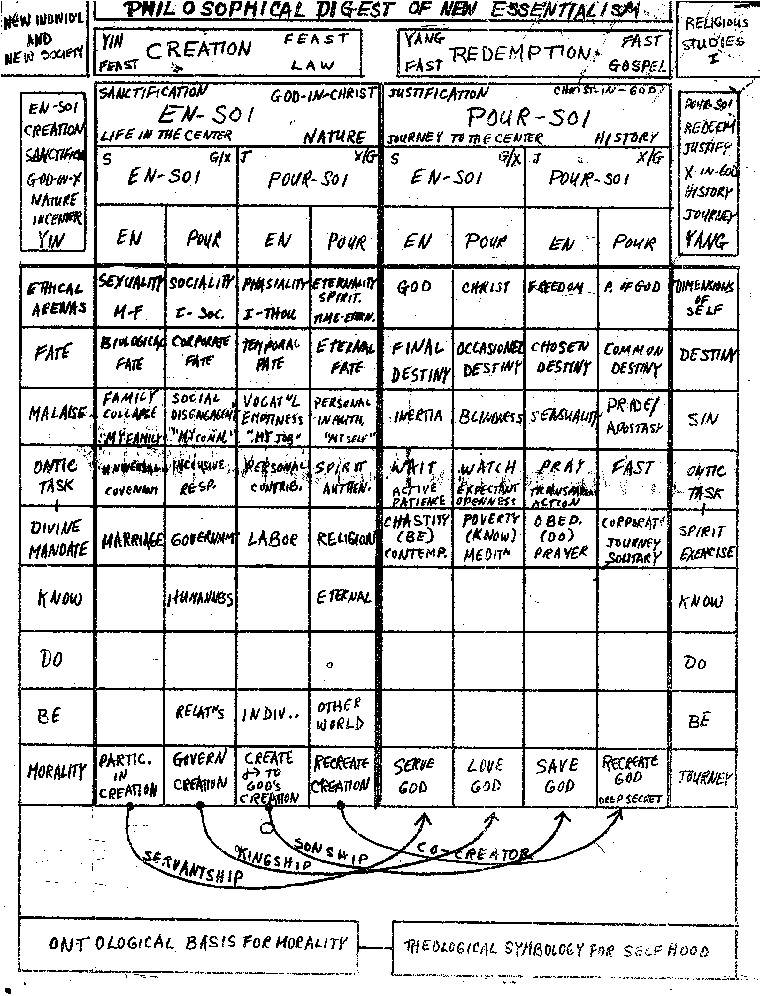 PHILOSOPHICAL DIGEST OF NEW ESSENTIALISM
NEW INDIVID'L
AND
NEW SOCIETY
RELIGIOUS
STUDIES
I
YIN FEAST
CREATION
FEAST LAW
YANG FAST
REDEMPTION
FAST GOSPEL
EN-SOI
CREATION
SANCTIFICA
GOD-IN-X
NATURE
IN CENTER
YIN
SANCTIFICATION GOD-IN-CHRIST
EN-SOI
LIFE IN THE CENTER NATURE
JUSTIFICATION CHRIST-IN-GOD
POUR-SOI
JOURNEY TO THE CENTER HISTORY
POUR-SOI
REDEEM
JUSTIFY
X-IN-GOD
HISTORY
JOURNEY
YANG
S G/X J X/G S G/X J X/G
EN-SOI POUR-SOI EN-SOI POUR-SOI
EN POUR EN POUR EN POUR EN POUR
ETHICAL ARENAS
SEXUALITY M-F
SOCIALITY I-SOC.
I-THOU
ETERNALITY SPIRIT.
GOD
CHRIST
FREEDOM
P. OF GOD
DIMENSIONS OF SELF
FATE
BIOLOGICAL FATE
CORPORATE FATE
TEMPORAL FATE
ETERNAL FATE
FINAL DESTINY
OCCASIONED DESTINY
CHOSEN DESTINY
COMMON DESTINY
DESTINY
MALAISE
FAMILY COLLAPSE "MY FAMILY"
SOCIAL DISENGAGEMENT
VOCAT'L EMPTINESS "MY JOB"
PERSONAL INAUTH, "MYSELF"
INERTIA
BLINDNESS
SENSUALITY
PRIDE/ APOSTASY
SIN
ONTIC TASK
UNIVERSAL COVENANT
INCLUSIVE RESP.
PERSONAL CONTRIB.
SPIRIT AUTHEN.
WAIT ACTIVE PATIENCE
WATCH EXPECTANT OPENNESS
PRAY TRANSPARENT ACTION
FAST
ONTIC TASK
DIVINE MANDATE
MARRIAGE
GOVERNMT
LABOR
RELIGION
CHASTITY (BE) CONTEMP.
POVERTY (KNOW) MEDIT'N
OBED. (DO) PRAYER
CORPORATE JOURNEY SOLITARY
SPIRIT EXERCISE
KNOW
HUMANNESS
ETERNAL
KNOW
DO
DO
BE
RELAT'NS
INDIV..
OTHER WORLD
BE
MORALITY
PARTIC. IN CREATION
GOVERN CREATION
CREATE TO GOD'S CREATION
RECREATE CREATION
SERVE GOD
LOVE GOD
SAVE GOD
RECREATE GOD DEEP SECRET
JOURNEY
SERVANTSHIP
KINGSHIP
SONSHIP
CO-CREATOR
ONTOLOGICAL BASIS FOR MORALITY
THEOLOGICAL SYMBOLOGY FOR SELFHOOD